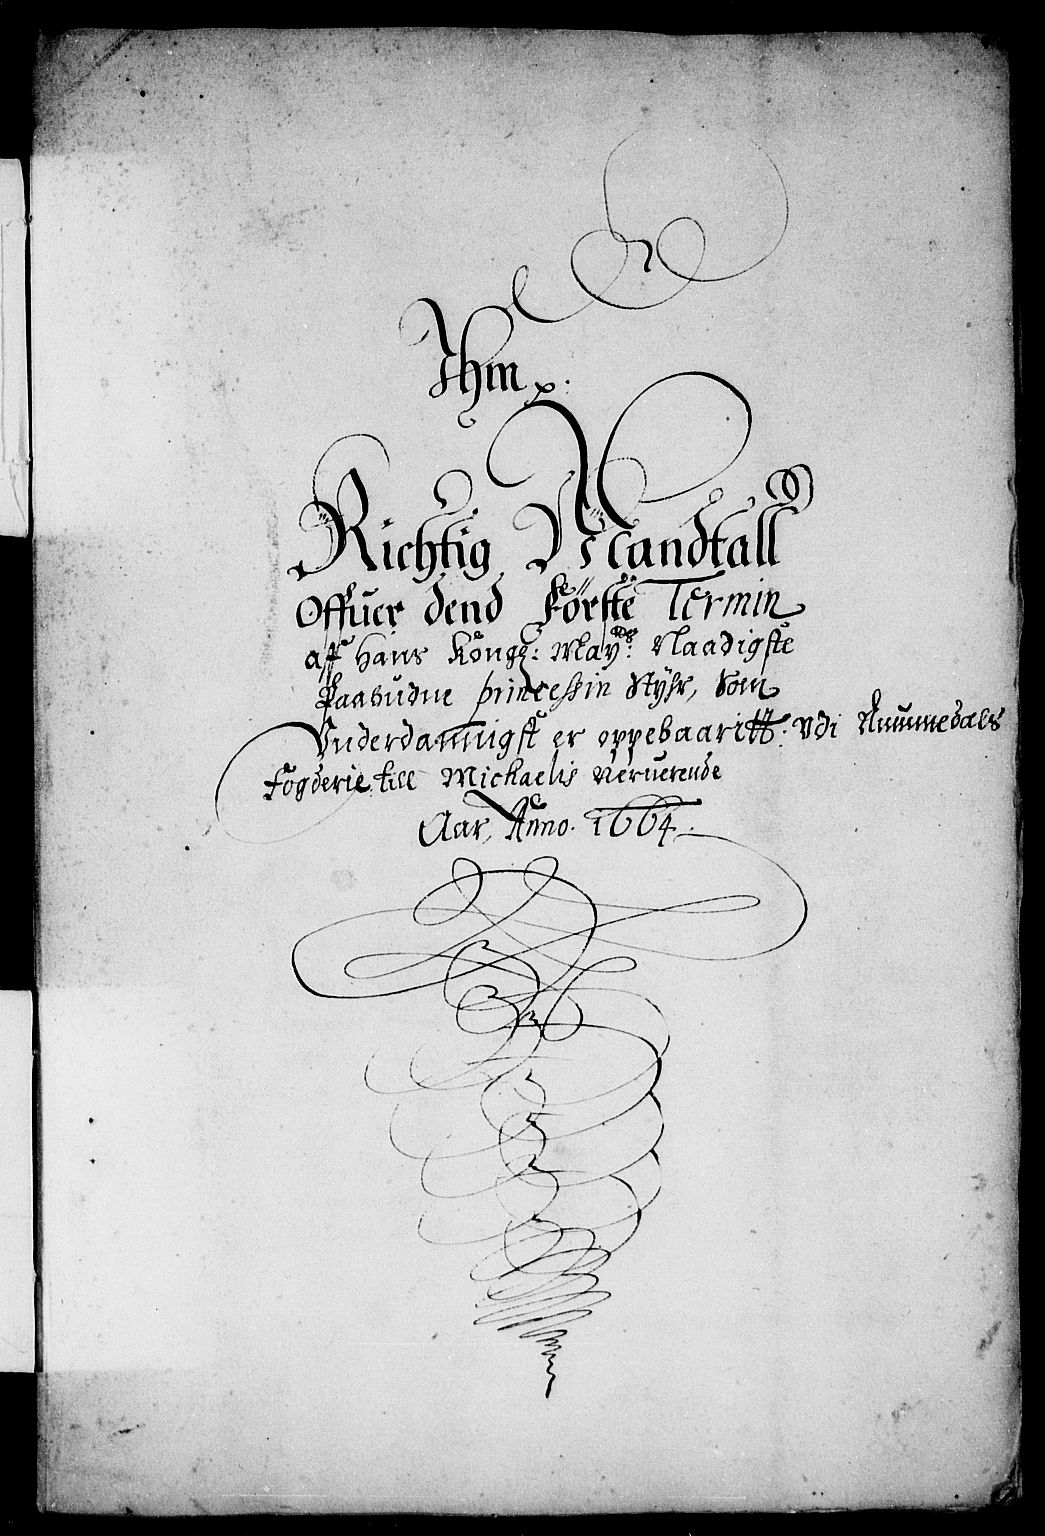 Ihm
Richtig Mandtall
Offuer dend Förste Termin
aff Hans Kongl: Mayts: Naadigste
Paabudne princessin Styhr, som
Vnderdannigst er oppebaaritt: Vdi Nummedals
Fogderie till Michaelis nerverende
Aar, Anno. 1664.